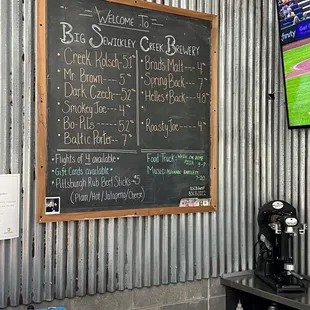 Welcome To
Big Sewickley Creek Brewery
Creek Kolsch - 5.1
Mr. Brown ---- 5
Dark Czech --- 5.2
Smokey Joe ---- 4
Bo-Pils ------ 5.2
Baltic Porter --- 7
Brads Malt --- 4
Spring Back ---- 7
Helles Back -- 4.8
Roasty Joe ---- 4
Flights of 4 available
Gift Cards available
Pittsburgh Rub Beef Sticks - $5
(Plain/Hot/Jalapeno/Cheese)
Food Truck -
Pizza
Music